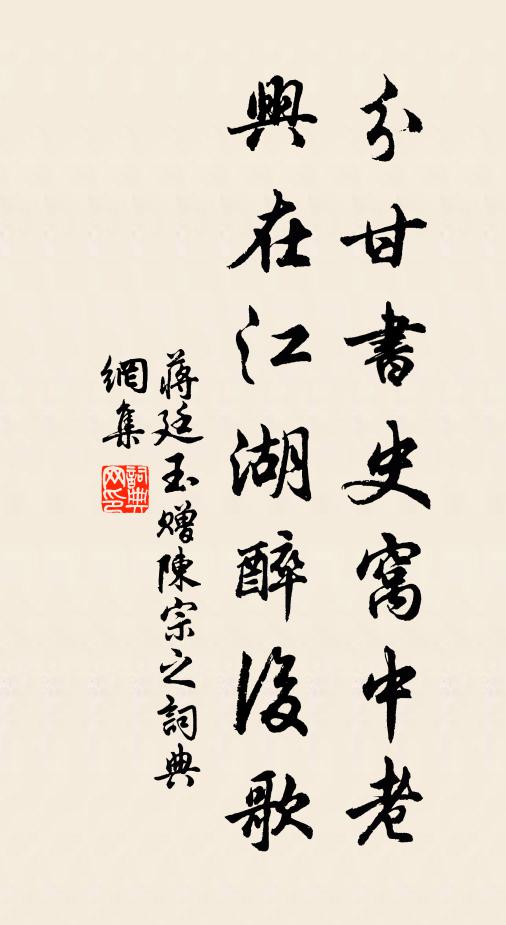 分甘書史窩中老
興在江湖醉後歌
蔣廷玉贈陳宗之詞典
網集
詞典網印